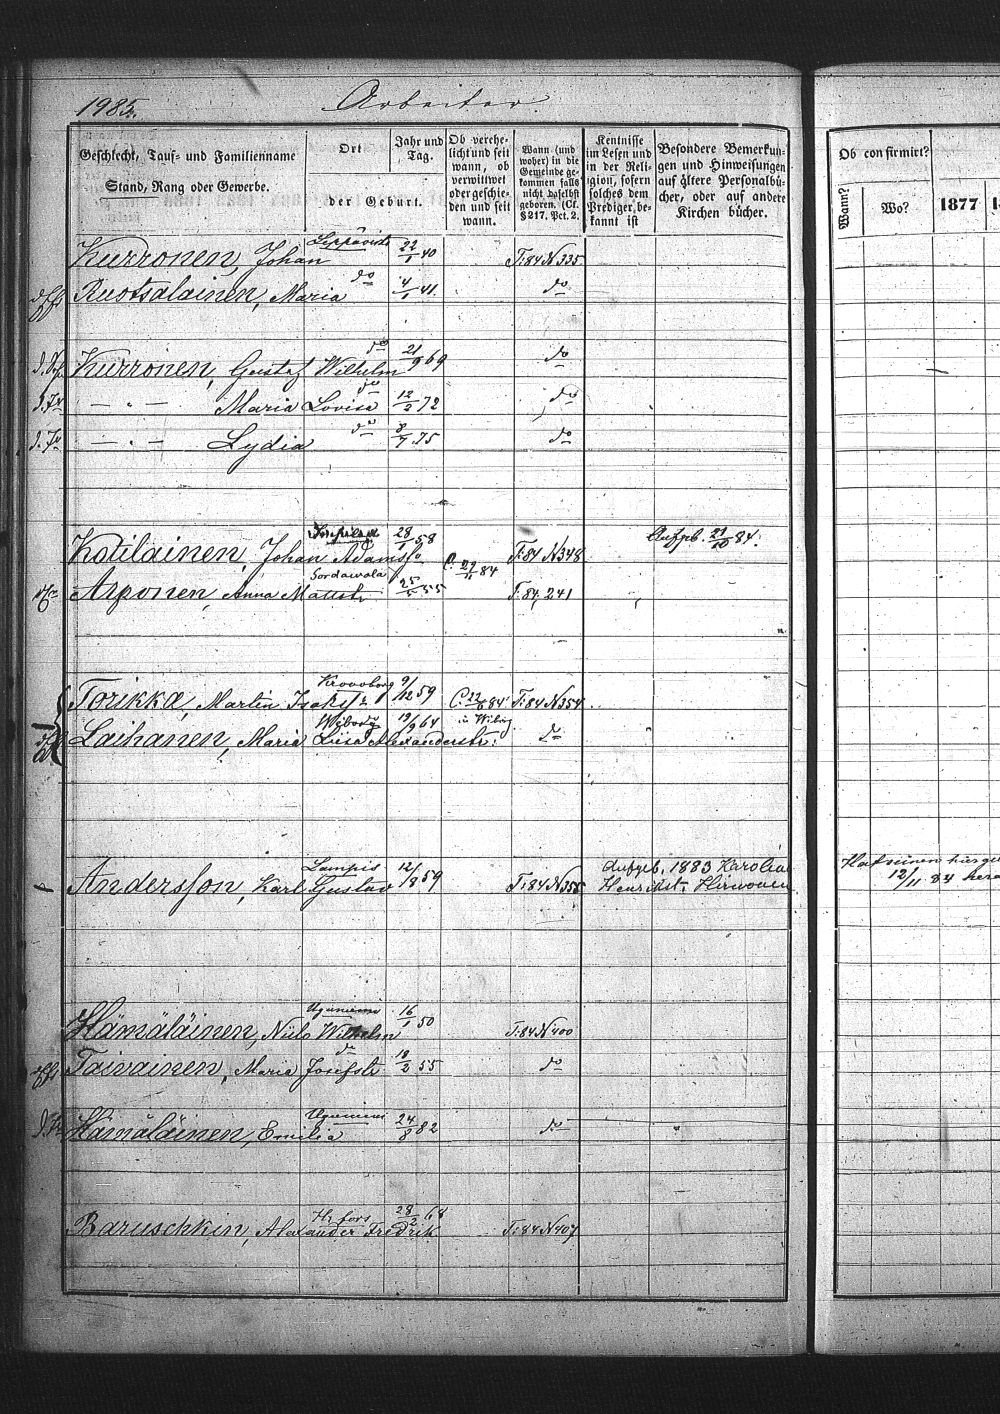 1985.
Arbeiter.
Geschlecht, Tauf= und Familienname
Stand, Rang oder Gewerbe.
Ort
der Geburt.
Jahr und
Tag.
Ob verehe=
licht und seit
wann, ob
verwittwet
oder geschie=
den und seit
wann.
Wann (und
woher) in die
Gemeinde ge=
kommen falls
nicht daselbst
geboren. (Cf.
§ 217, Pct. 2.
Kentnisse
im Lesen und
in der Reli=
gion, sofern
solches dem
Prediger be=
kannt ist
Besondere Bemerkun=
gen und Hinweisungen
auf ältere Personalbü=
cher, oder auf andere
Kirchen bücher.
Ob confirmirt?
Wann?
Wo?
1877
Kurronen, Johan Leppävirta 22/1 40 T:84 N 335
Ruotsalainen, Maria do 4/1 41. do
Kurronen, Gustaf Wilhelm do 21/9 69 do
— " — Maria Lovisa do 12/2 72 do
— " — Lydia do 8/7 75 do
Kotilainen, Johan Adamsso 28/1 58 T:84 N 348 Aufgeb. 21/10 84.
Arponen, Anna Mattstr Sordawala 25/5 55 C. 29/11 84 T:84, 241
Torikka, Martin Isaks Kronoborg 9/12 59 T:84 N 354
Laihanen, Maria Liisa Alexanderstr: Wyborg 19/9 64 in Wiborg do
Andersson, Karl Gustav Lampis 12/8 59 T:84 N 358 Aufgeb. 1883 Karolina
Henrikstr Hirwonen
12/11 84
Hämäläinen, Niilo Wilhelm Uguniemi 16/1 50 T:84 N 400
Taivainen, Maria Josefstr do 18/2 55 do
Hämäläinen, Emilia Uguniemi 24/8 82 do
Baruschkin, Alexander Fredrik H:fors 28/2 68 T:84 N 407